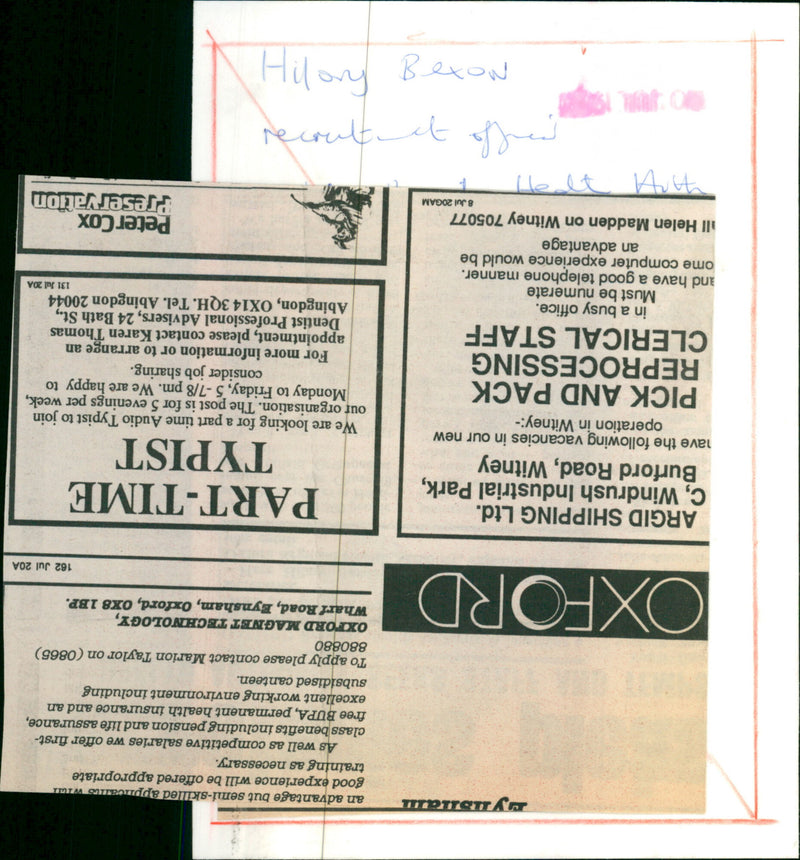 Hilary Bexon
recruitment officer
Health Auth
Eynsham
OXFORD
ARGID SHIPPING Ltd.
C, Windrush Industrial Park,
Burford Road, Witney
ave the following vacancies in our new
operation in Witney:-
PICK AND PACK
REPROCESSING
CLERICAL STAFF
in a busy office.
Must be numerate
and have a good telephone manner.
ome computer experience would be
an advantage
all Helen Madden on Witney 705077
8 Jul 20GAM
an advantage but semi-skilled applicants with
good experience will be offered appropriate
training as necessary.
As well as competitive salaries we offer first-
class benefits including pension and life assurance,
free BUPA, permanent health insurance and an
excellent working environment including
subsidised canteen.
To apply please contact Marion Taylor on (0865)
880880
OXFORD MAGNET TECHNOLOGY,
Wharf Road, Eynsham, Oxford, OX8 1BP.
162 Jul 20A
PART-TIME
TYPIST
We are looking for a part time Audio Typist to join
our organisation. The post is for 5 evenings per week,
Monday to Friday, 5 -7/8 pm. We are happy to
consider job sharing.
For more information or to arrange an
appointment, please contact Karen Thomas
Dentist Professional Advisers, 24 Bath St.,
Abingdon, OX14 3QH. Tel. Abingdon 20044
131 Jul 20A
Peter Cox
Preservation